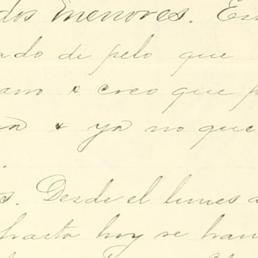 dos menores. En
ado de pelo que
ano & coco que p
& ya no que
s. Desde el lunes a
hasta hoy se han